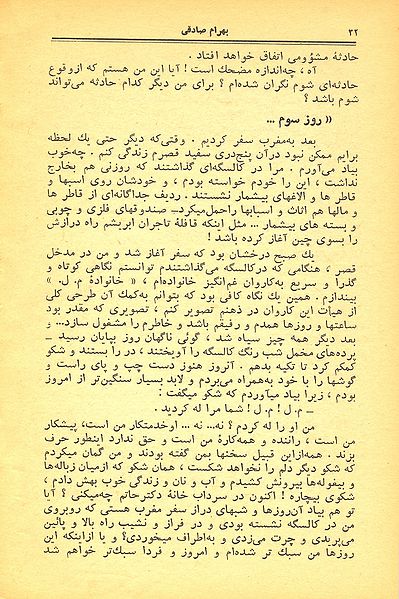 ۳۲ بهرام صادقی
حادثهٔ مشؤومی اتفاق خواهد افتاد .
آه ، چه‌اندازه مضحك است ! آیا این من هستم که ازوقوع
حادثه‌ای شوم نگران شده‌ام ؟ برای من دیگر کدام حادثه می‌تواند
شوم باشد ؟
« روز سوم ...
بعد به‌مغرب سفر کردیم . وقتی‌که دیگر حتی یك لحظه
برایم ممکن نبود درآن پنج‌دری سفید قصرم زندگی کنم . چه‌خوب
بیاد می‌آورم . مرا در کالسگه‌ای گذاشتند که روزنی هم بخارج
نداشت ، این را خودم خواسته بودم ، و خودشان روی اسبها و
قاطر ها و الاغهای بیشمار نشستند . ردیف جداگانه‌ای از قاطر ها
و مالها هم اثاث و اسبابها راحمل‌میکرد_ صندوقهای فلزی و چوبی
و بسته های بیشمار ... مثل اینکه قافلهٔ تاجران ابریشم راه درازش
را بسوی چین آغاز کرده باشد !
یك صبح درخشان بود که سفر آغاز شد و من در مدخل
قصر ، هنگامی که درکالسگه می‌گذاشتندم توانستم نگاهی کوتاه و
گذرا و سریع به‌کاروان غم‌انگیز خانواده‌ام ، « خانوادهٔ م.ل. »
بیندازم . همین یك نگاه کافی بود که بتوانم به‌کمك آن طرحی کلی
از هیأت این کاروان در ذهنم تصویر کنم ، تصویری که مقدر بود
ساعتها و روزها همدم و رفیقم باشد و خاطرم را مشغول سازد... و
بعد دیگر همه چیز سیاه شد ، گوئی ناگهان روز بپایان رسید _
پرده‌های مخمل شب رنگ کالسگه را آویختند ، در را بستند و شکو
کمکم کرد تا تکیه بدهم . آنروز هنوز دست چپ و پای راست و
گوشها را با خود به‌همراه می‌بردم و لابد بسیار سنگین‌تر از امروز
بودم ، زیرا بیاد میآوردم که شکو میگفت :
_ م.ل ! م.ل ! شما مرا له کردید .
من او را له کردم ؟ نه... نه ... اوخدمتکار من است، پیشکار
من است ، راننده و همه‌کارهٔ من است و حق ندارد اینطور حرف
بزند . همه‌ازاین قبیل سخنها بمن گفته بودند و من گمان میکردم
که شکو دیگر دلم را نخواهد شکست ، همان شکو که ازمیان زباله‌ها
و بیغوله‌ها بیرونش کشیدم و آب و نان و زندگی خوب بهش دادم ،
شکوی بیچاره ! اکنون در سرداب خانهٔ دکترحاتم چه‌میکنی ؟ آیا
تو هم بیاد آن‌روزها و شبهای دراز سفر مغرب هستی که روبروی
من در کالسگه نشسته بودی و در فراز و نشیب راه بالا و پائین
می‌پریدی و چرت می‌زدی و به‌اطراف میخوردی؟ و یا ازاینکه این
روزها من سبك تر شده‌ام و امروز و فردا سبك‌تر خواهم شد